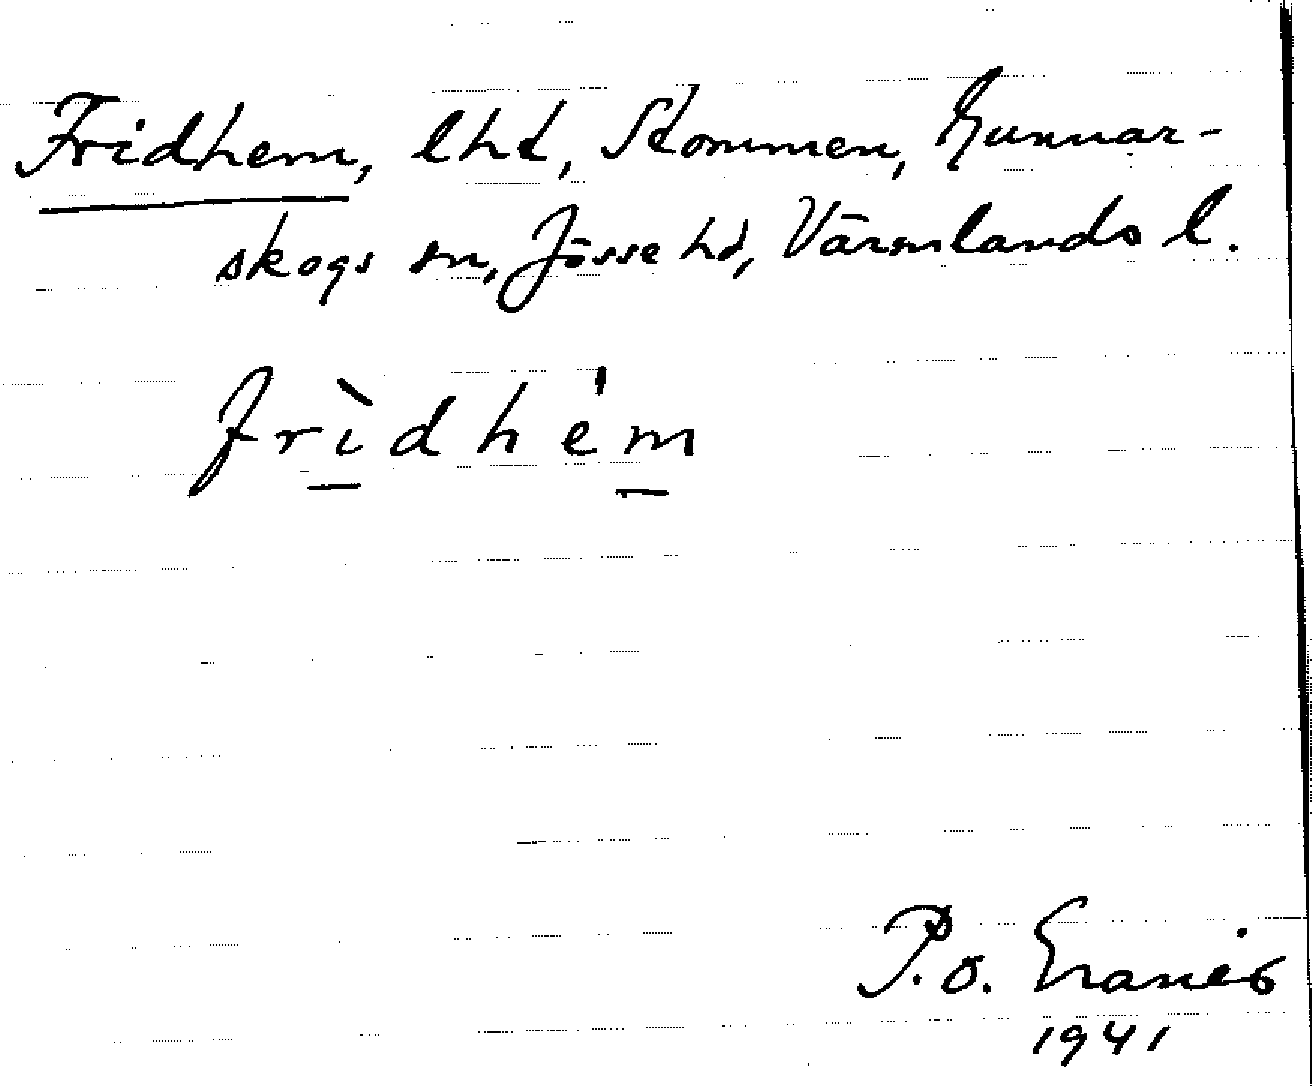 Fridhem, lht, Stommen, Gunnar-
skogs sn, Jösse hd, Värmlands l.
frìdhém
P.O.
1941